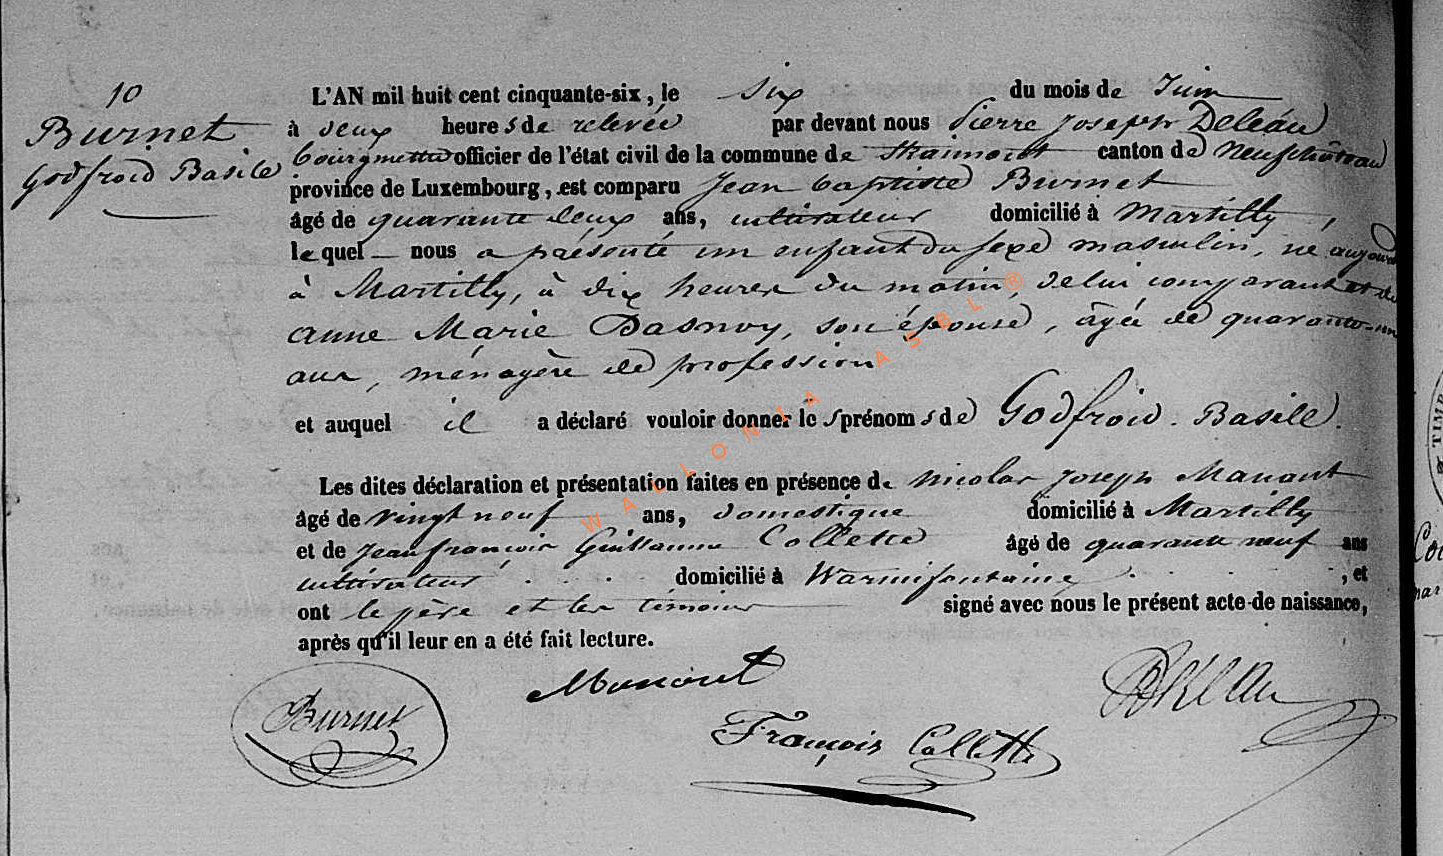 10
Burnet
Godfroid Basile
L'AN mil huit cent cinquante-six, le six du mois de Juin
à deux heures de relevée par devant nous Pierre Joseph Deléau
bourgmettre officier de l'état civil de la commune de Straimont canton de Neufchâteau
province de Luxembourg, est comparu Jean baptiste Burnet
âgé de quarante deux ans, cultivateur domicilié à Martilly,
lequel nous a présenté un enfant du sexe masculin, né aujourd
à Martilly, à dix heures du matin, de lui comparant et de
anne Marie Dasnoy, son épouse, âgée de quarante-un
ans, ménagère de profession
et auquel il a déclaré vouloir donner les prénoms de Godfroid. Basile.
Les dites déclaration et présentation faites en présence de Nicolas Joseph Manant
âgé de vingt neuf ans, domestique domicilié à Martilly
et de Jean françois Guillaume Collette âgé de quarante neuf ans
cultivateur . . . . domicilié à Warmifontaine . . . , et
ont le père et les témoins signé avec nous le présent acte de naissance,
après qu'il leur en a été fait lecture.
Burnet
François Collette
WALLONIA ASBL ®
TIMB